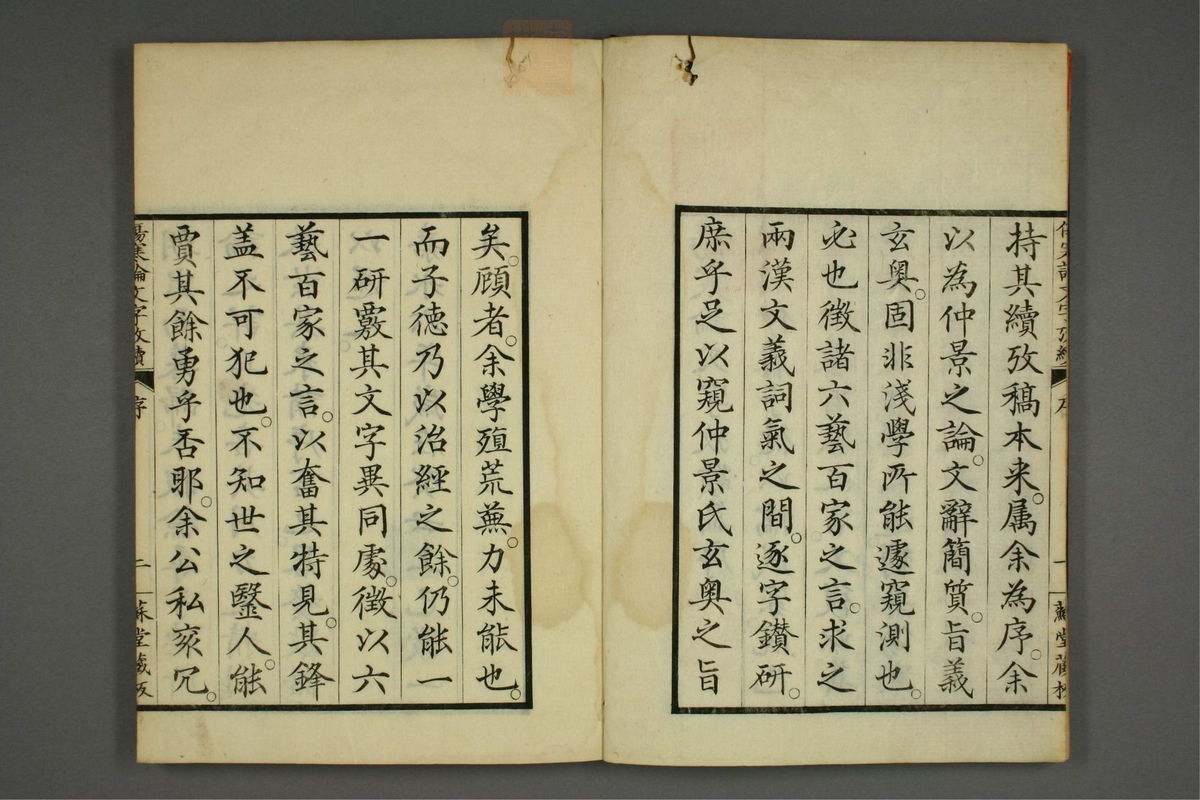 持其續攷稿本来。属余為序。余
以為仲景之論。文辭簡質。旨義
玄奥。固非淺學所能遽窺測也。
必也徵諸六藝百家之言。求之
兩漢文義詞氣之間。逐字鑚研。
庶乎足以窺仲景氏玄奥之旨
矣。顧者。余學殖荒蕪。力未能也。
而子德乃以治經之餘。仍能一
一研覈其文字異同處。徵以六
藝百家之言。以奮其特見。其鋒
盖不可犯也。不知世之毉人。能
賈其餘勇乎否耶。余公私衮冗。
傷寒論文字攷續 序 二 蘇堂蔵板